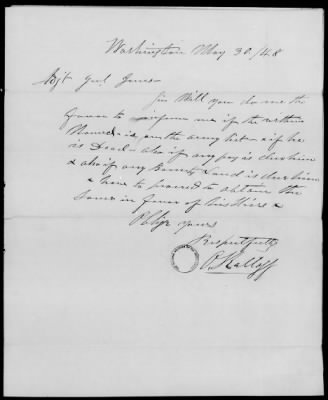 Washington May 30/48
Adjt Genl Jones
Sir Will you do me the
favor to inform me if the within
Named is in the army list & if he
is Dead & also if any pay is due him
& also if any Bounty Land is due him
& how to proceed to obtain the
same in favor of his Heirs &
Oblige yours
Respectfully